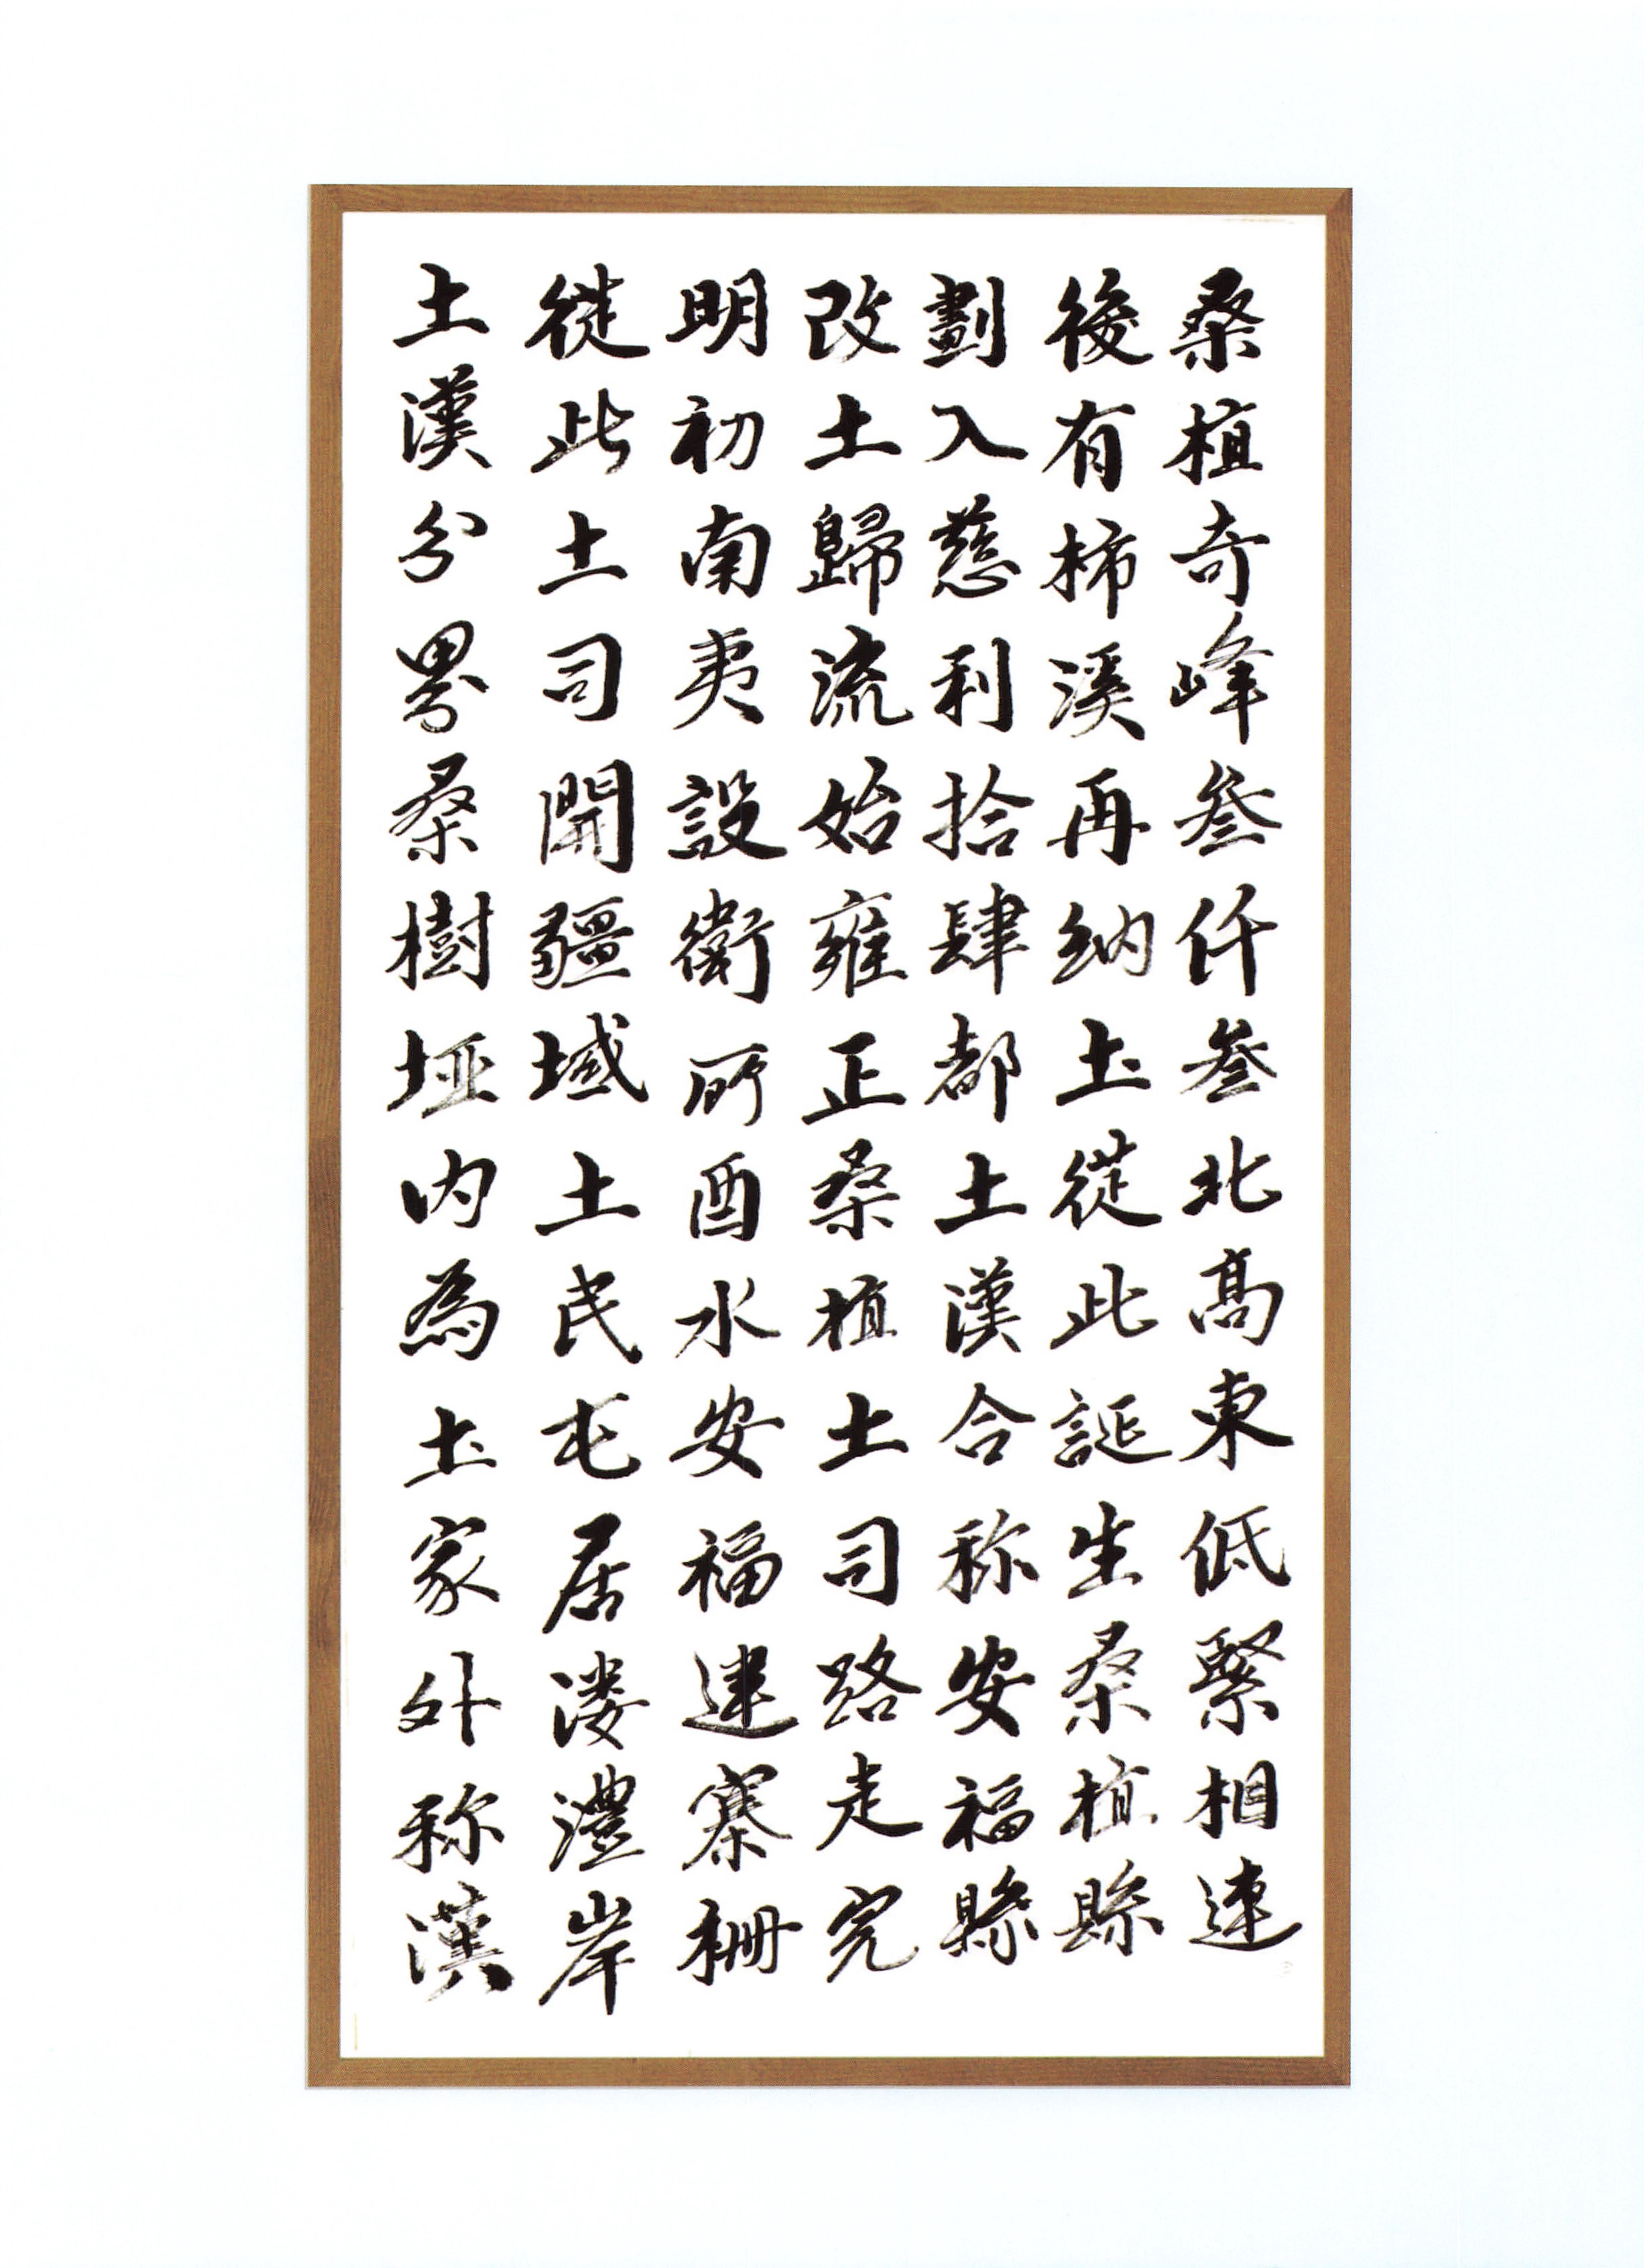 桑植奇峰叄仟叄北高東低緊相連
後有柿溪再納土從此誕生桑植縣
劃入慈利拾肆都土漢合称安福縣
改土歸流始雍正桑植土司路走完
明初南夷設衛所酉水安福建寨栅
從此土司開疆域土民屯居溇澧岸
土漢分界桑樹埡内為土家外称漢